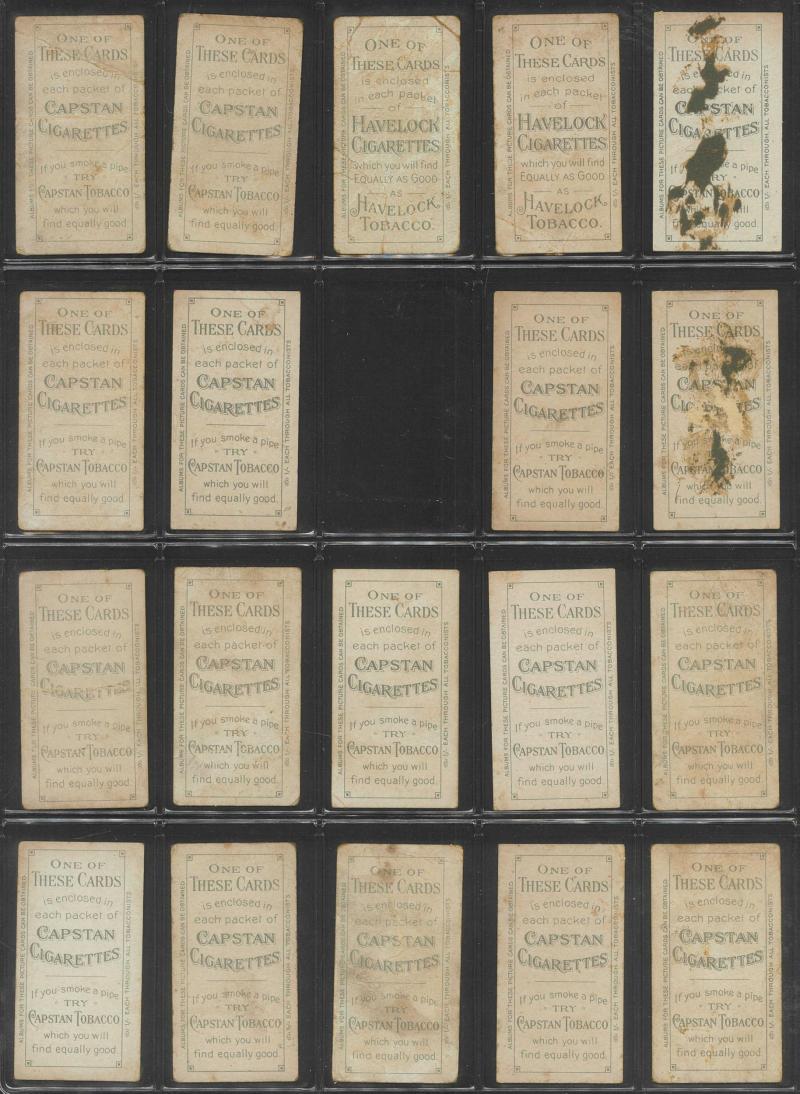 ONE OF
THESE CARDS
is enclosed in
each packet of
CAPSTAN
CIGARETTES
If you smoke a pipe
TRY
CAPSTAN TOBACCO
which you will
find equally good.
ALBUMS FOR THESE PICTURE CARDS CAN BE OBTAINED
EACH THROUGH ALL TOBACCONISTS
ONE OF
THESE CARDS
is enclosed in
each packet of
CAPSTAN
CIGARETTES
If you smoke a pipe
TRY
CAPSTAN TOBACCO
which you will
find equally good.
ALBUMS FOR THESE PICTURE CARDS CAN BE OBTAINED
EACH THROUGH ALL TOBACCONISTS
ONE OF
THESE CARDS
is enclosed
in each packet
of
HAVELOCK
CIGARETTES
which you will find
EQUALLY AS GOOD
AS
HAVELOCK
TOBACCO.
ALBUMS FOR THESE PICTURE CARDS CAN BE OBTAINED
EACH THROUGH ALL TOBACCONISTS
ONE OF
THESE CARDS
is enclosed
in each packet
of
HAVELOCK
CIGARETTES
which you will find
EQUALLY AS GOOD
AS
HAVELOCK
TOBACCO.
ALBUMS FOR THESE PICTURE CARDS CAN BE OBTAINED
EACH THROUGH ALL TOBACCONISTS
THESE CARDS
CAPSTAN
CIGARETTES
If you smoke a pipe
CAPSTAN TOBACCO
which you will
find equally good.
ALBUMS FOR THESE PICTURE CARDS CAN BE OBTAINED
EACH THROUGH ALL TOBACCONISTS
ONE OF
THESE CARDS
is enclosed in
each packet of
CAPSTAN
CIGARETTES
If you smoke a pipe
TRY
CAPSTAN TOBACCO
which you will
find equally good.
ALBUMS FOR THESE PICTURE CARDS CAN BE OBTAINED
EACH THROUGH ALL TOBACCONISTS
ONE OF
THESE CARDS
is enclosed in
each packet of
CAPSTAN
CIGARETTES
If you smoke a pipe
TRY
CAPSTAN TOBACCO
which you will
find equally good.
ALBUMS FOR THESE PICTURE CARDS CAN BE OBTAINED
EACH THROUGH ALL TOBACCONISTS
ONE OF
THESE CARDS
is enclosed in
each packet of
CAPSTAN
CIGARETTES
If you smoke a pipe
TRY
CAPSTAN TOBACCO
which you will
find equally good.
ALBUMS FOR THESE PICTURE CARDS CAN BE OBTAINED
EACH THROUGH ALL TOBACCONISTS
ONE OF
THESE CARDS
is enclosed in
each packet of
CAPSTAN
If you smoke a pipe
CAPSTAN TOBACCO
which you will
find equally good.
ALBUMS FOR THESE PICTURE CARDS CAN BE OBTAINED
EACH THROUGH ALL TOBACCONISTS
ONE OF
THESE CARDS
is enclosed in
each packet of
CAPSTAN
CIGARETTES
If you smoke a pipe
TRY
CAPSTAN TOBACCO
which you will
find equally good.
ALBUMS FOR THESE PICTURE CARDS CAN BE OBTAINED
EACH THROUGH ALL TOBACCONISTS
ONE OF
THESE CARDS
is enclosed in
each packet of
CAPSTAN
CIGARETTES
If you smoke a pipe
TRY
CAPSTAN TOBACCO
which you will
find equally good.
ALBUMS FOR THESE PICTURE CARDS CAN BE OBTAINED
EACH THROUGH ALL TOBACCONISTS
ONE OF
THESE CARDS
is enclosed in
each packet of
CAPSTAN
CIGARETTES
If you smoke a pipe
TRY
CAPSTAN TOBACCO
which you will
find equally good.
ALBUMS FOR THESE PICTURE CARDS CAN BE OBTAINED
EACH THROUGH ALL TOBACCONISTS
ONE OF
THESE CARDS
is enclosed in
each packet of
CAPSTAN
CIGARETTES
If you smoke a pipe
TRY
CAPSTAN TOBACCO
which you will
find equally good.
ALBUMS FOR THESE PICTURE CARDS CAN BE OBTAINED
EACH THROUGH ALL TOBACCONISTS
ONE OF
THESE CARDS
is enclosed in
each packet of
CAPSTAN
CIGARETTES
If you smoke a pipe
TRY
CAPSTAN TOBACCO
which you will
find equally good.
ALBUMS FOR THESE PICTURE CARDS CAN BE OBTAINED
EACH THROUGH ALL TOBACCONISTS
ONE OF
THESE CARDS
is enclosed in
each packet of
CAPSTAN
CIGARETTES
If you smoke a pipe
TRY
CAPSTAN TOBACCO
which you will
find equally good.
ALBUMS FOR THESE PICTURE CARDS CAN BE OBTAINED
EACH THROUGH ALL TOBACCONISTS
ONE OF
THESE CARDS
is enclosed in
each packet of
CAPSTAN
CIGARETTES
If you smoke a pipe
TRY
CAPSTAN TOBACCO
which you will
find equally good.
ALBUMS FOR THESE PICTURE CARDS CAN BE OBTAINED
EACH THROUGH ALL TOBACCONISTS
ONE OF
THESE CARDS
is enclosed in
each packet of
CAPSTAN
CIGARETTES
If you smoke a pipe
TRY
CAPSTAN TOBACCO
which you will
find equally good.
ALBUMS FOR THESE PICTURE CARDS CAN BE OBTAINED
EACH THROUGH ALL TOBACCONISTS
ONE OF
THESE CARDS
is enclosed in
each packet of
CAPSTAN
CIGARETTES
If you smoke a pipe
TRY
CAPSTAN TOBACCO
which you will
find equally good.
ALBUMS FOR THESE PICTURE CARDS CAN BE OBTAINED
EACH THROUGH ALL TOBACCONISTS
ONE OF
THESE CARDS
is enclosed in
each packet of
CAPSTAN
CIGARETTES
If you smoke a pipe
TRY
CAPSTAN TOBACCO
which you will
find equally good.
ALBUMS FOR THESE PICTURE CARDS CAN BE OBTAINED
EACH THROUGH ALL TOBACCONISTS